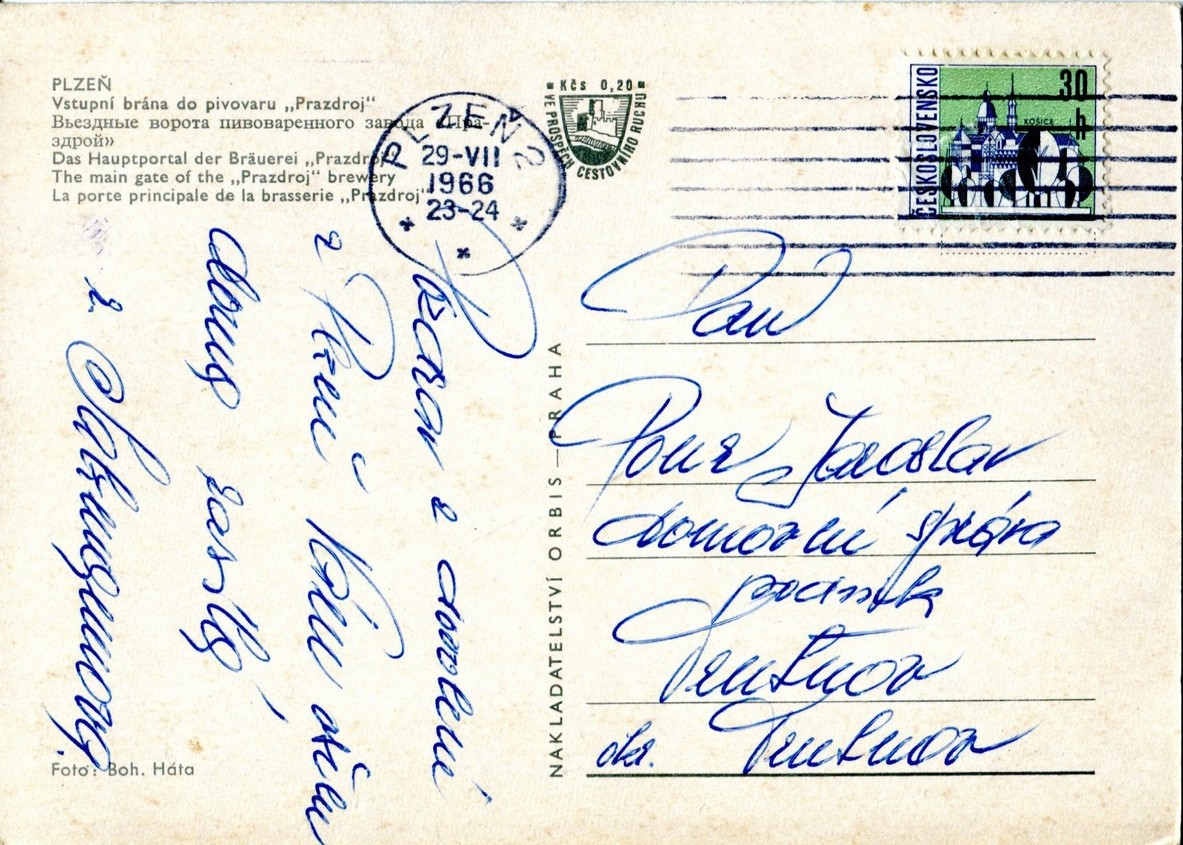 PLZEŇ
Vstupní brána do pivovaru „Prazdroj“
Вьездные ворота пивоваренного завода «Пра-
здрой»
Das Hauptportal der Bräuerei „Prazdroj
The main gate of the „Prazdroj“ brewery
La porte principale de la brasserie „Prazdroj“
PLZEŇ 2
29-VII
1966
23-24
Kčs 0,20
VE PROSPĚCH CESTOVNÍHO RUCHU
ČESKOSLOVENSKO
30
h
KOŠICE
Pozdrav z dovolené
z Plzně Vám všem
domů zasílá
NAKLADATELSTVÍ ORBIS—PRAHA
Pan
Jaroslav
domovní správa
podnik
Trutnov
okr. Trutnov
Foto: Boh. Háta